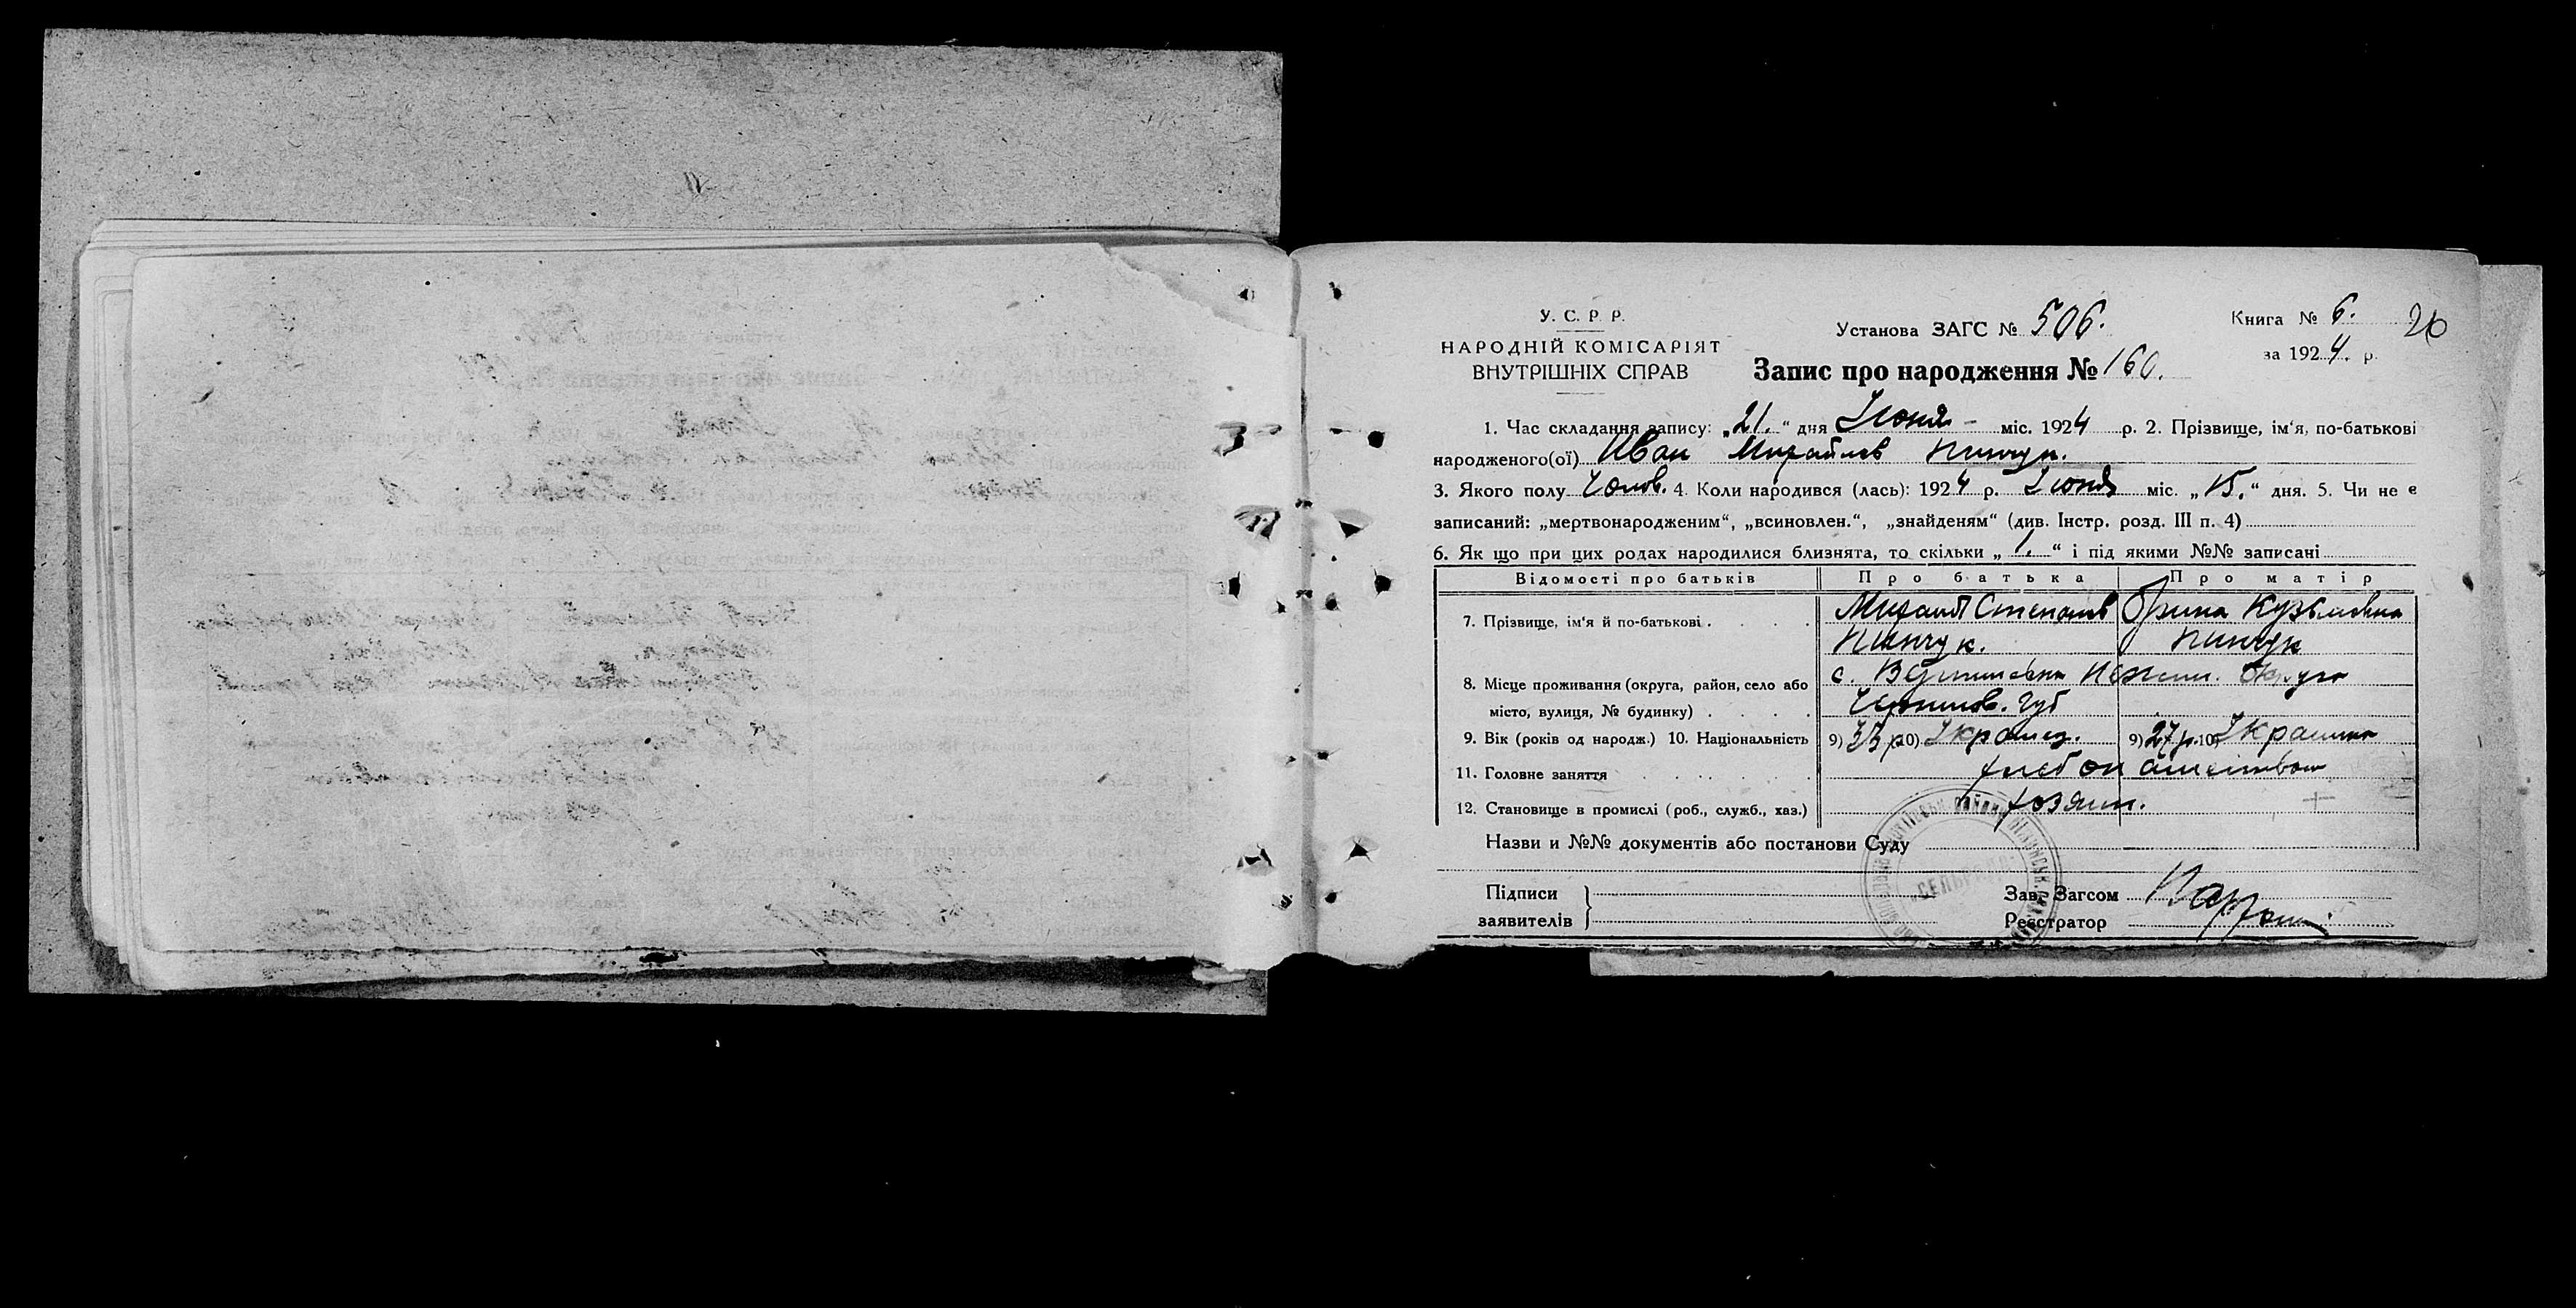 У. С. Р. Р.
НАРОДНІЙ КОМІСАРІЯТ
ВНУТРІШНІХ СПРАВ
Установа ЗАГС № 506.
Книга № 6. 26
за 1924. р.
Запис про народження № 160.
1. Час складання запису: „21.“ дня Июня - міс. 1924 р. 2. Прізвище, ім'я, по-батькові
народженого(ої) Иван Михайлов Пинчук.
3. Якого полу Чолов. 4. Коли народився (лась): 1924 р. Июня міс. „15.“ дня. 5. Чи не є
записаний: „мертвонародженим“, „всиновлен.“, „знайденям“ (див. Інстр. розд. III п. 4)
6. Як що при цих родах народилися близнята, то скільки „1.“ і під якими №№ записані
Відомості про батьків Про батька Про матір
7. Прізвище, ім'я й по-батькові . . . . Михаил Степанов Орина Кузьмовна
Пинчук. Пинчук
8. Місце проживання (округа, район, село або с. Нежин. Округа
місто, вулиця, № будинку) . . . . Чернигов. Губ
9. Вік (років од народж.) 10. Національність 9) 33 р. 10) Украинец. 9) 27 р. 10) Украинка
11. Головне заняття . . . . . хлебопашество
12. Становище в промислі (роб., служб., хаз.) хозяин.
Назви и №№ документів або постанови Суду
СЕЛЬРАДА
Підписи
заявителів
Зав. Загсом
Реєстратор